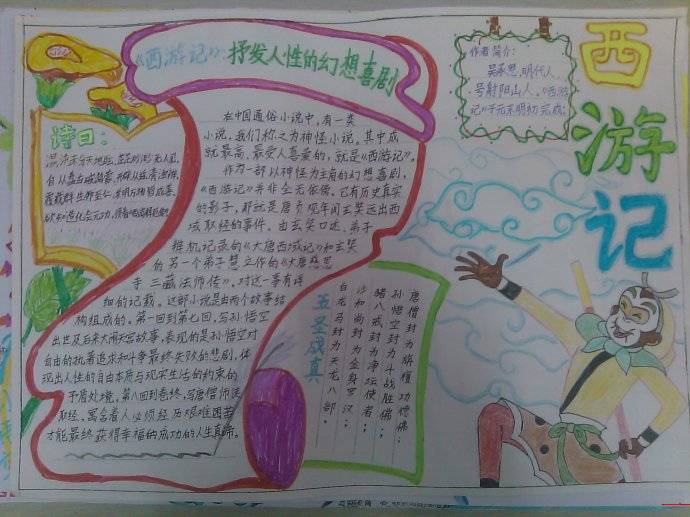 《西游记》：抒发人性的幻想喜剧
西游记
作者简介：
吴承恩，明代人，
号射阳山人。《西游
记》于元末明初完成。
诗曰：
混沌未分天地乱，茫茫渺渺无人见。
自从盘古破鸿蒙，开辟从兹清浊辨。
覆载群生仰至仁，发明万物皆成善。
欲知造化会元功，须看西游释厄传。
在中国通俗小说中，有一类
小说，我们称之为神怪小说。其中成
就最高、最受人喜爱的，就是《西游记》。
作为一部以神怪为主角的幻想喜剧，
《西游记》并非全无依傍。它有历史真实
的影子，那就是唐贞观年间玄奘远出西
域取经的事件。由玄奘口述、弟子
推机记录的《大唐西域记》和玄奘
的另一个弟子慧立作的《大唐慈恩
寺三藏法师传》，对这一事有详
细的记载。这部小说是由两个故事结
构组成的。第一回到第七回，写孙悟空
出世及后来大闹天宫故事，表现的是孙悟空对
自由的执著追求和斗争最终失败的悲剧，体
现出人性的自由本质与现实生活的约束的
矛盾处境。第八回到卷终，写唐僧师徒
取经，寓含着人必须经历艰难困苦
才能最终获得幸福的成功的人生真谛。
五圣成真
唐僧封为旃檀功德佛；
孙悟空封为斗战胜佛；
猪八戒封为净坛使者；
沙和尚封为金身罗汉；
白龙马封为天龙八部。